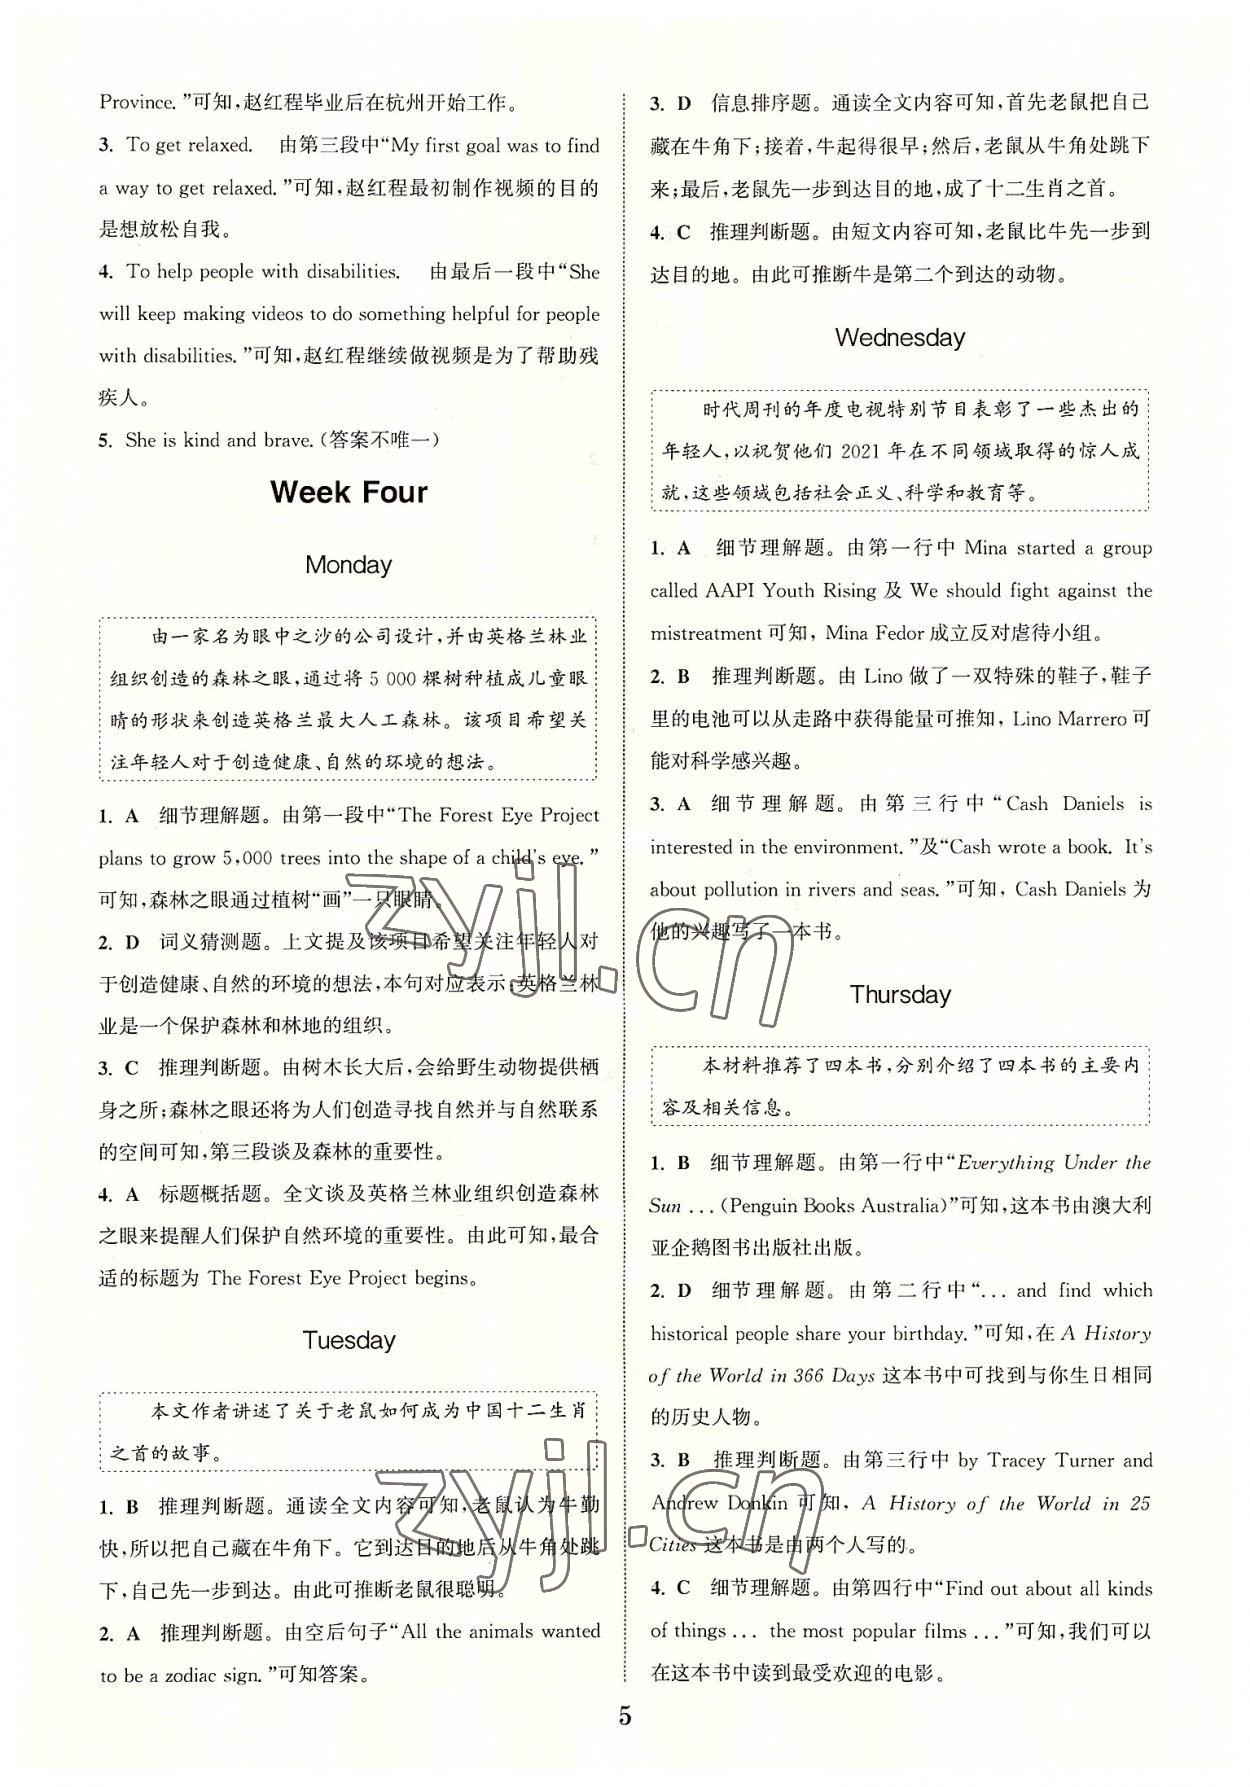 Province. ”可知,赵红程毕业后在杭州开始工作。
3. To get relaxed.　由第三段中“My first goal was to find
a way to get relaxed. ”可知,赵红程最初制作视频的目的
是想放松自我。
4. To help people with disabilities.　由最后一段中“She
will keep making videos to do something helpful for people
with disabilities. ”可知,赵红程继续做视频是为了帮助残
疾人。
5. She is kind and brave. (答案不唯一)
Week Four
Monday
由一家名为眼中之沙的公司设计,并由英格兰林业
组织创造的森林之眼,通过将 5 000 棵树种植成儿童眼
睛的形状来创造英格兰最大人工森林。该项目希望关
注年轻人对于创造健康、自然的环境的想法。
1. A　细节理解题。由第一段中“The Forest Eye Project
plans to grow 5,000 trees into the shape of a child's eye. ”
可知,森林之眼通过植树“画”一只眼睛。
2. D　词义猜测题。上文提及该项目希望关注年轻人对
于创造健康、自然的环境的想法,本句对应表示:英格兰林
业是一个保护森林和林地的组织。
3. C　推理判断题。由树木长大后,会给野生动物提供栖
身之所;森林之眼还将为人们创造寻找自然并与自然联系
的空间可知,第三段谈及森林的重要性。
4. A　标题概括题。全文谈及英格兰林业组织创造森林
之眼来提醒人们保护自然环境的重要性。由此可知,最合
适的标题为 The Forest Eye Project begins。
Tuesday
本文作者讲述了关于老鼠如何成为中国十二生肖
之首的故事。
1. B　推理判断题。通读全文内容可知,老鼠认为牛勤
快,所以把自己藏在牛角下。它到达目的地后从牛角处跳
下,自己先一步到达。由此可推断老鼠很聪明。
2. A　推理判断题。由空后句子“All the animals wanted
to be a zodiac sign. ”可知答案。
3. D　信息排序题。通读全文内容可知,首先老鼠把自己
藏在牛角下;接着,牛起得很早;然后,老鼠从牛角处跳下
来;最后,老鼠先一步到达目的地,成了十二生肖之首。
4. C　推理判断题。由短文内容可知,老鼠比牛先一步到
达目的地。由此可推断牛是第二个到达的动物。
Wednesday
时代周刊的年度电视特别节目表彰了一些杰出的
年轻人,以祝贺他们 2021 年在不同领域取得的惊人成
就,这些领域包括社会正义、科学和教育等。
1. A　细节理解题。由第一行中 Mina started a group
called AAPI Youth Rising 及 We should fight against the
mistreatment 可知, Mina Fedor 成立反对虐待小组。
2. B　推理判断题。由 Lino 做了一双特殊的鞋子,鞋子
里的电池可以从走路中获得能量可推知, Lino Marrero 可
能对科学感兴趣。
3. A　细节理解题。由第三行中“Cash Daniels is
interested in the environment. ”及“Cash wrote a book. It's
about pollution in rivers and seas. ”可知, Cash Daniels 为
他的兴趣写了一本书。
Thursday
本材料推荐了四本书,分别介绍了四本书的主要内
容及相关信息。
1. B　细节理解题。由第一行中“Everything Under the
Sun ... (Penguin Books Australia)”可知,这本书由澳大利
亚企鹅图书出版社出版。
2. D　细节理解题。由第二行中“... and find which
historical people share your birthday. ”可知,在 A History
of the World in 366 Days 这本书中可找到与你生日相同
的历史人物。
3. B　推理判断题。由第三行中 by Tracey Turner and
Andrew Donkin 可知, A History of the World in 25
Cities 这本书是由两个人写的。
4. C　细节理解题。由第四行中“Find out about all kinds
of things ... the most popular films ...”可知,我们可以
在这本书中读到最受欢迎的电影。
5
zyjl.cn
zyjl.cn